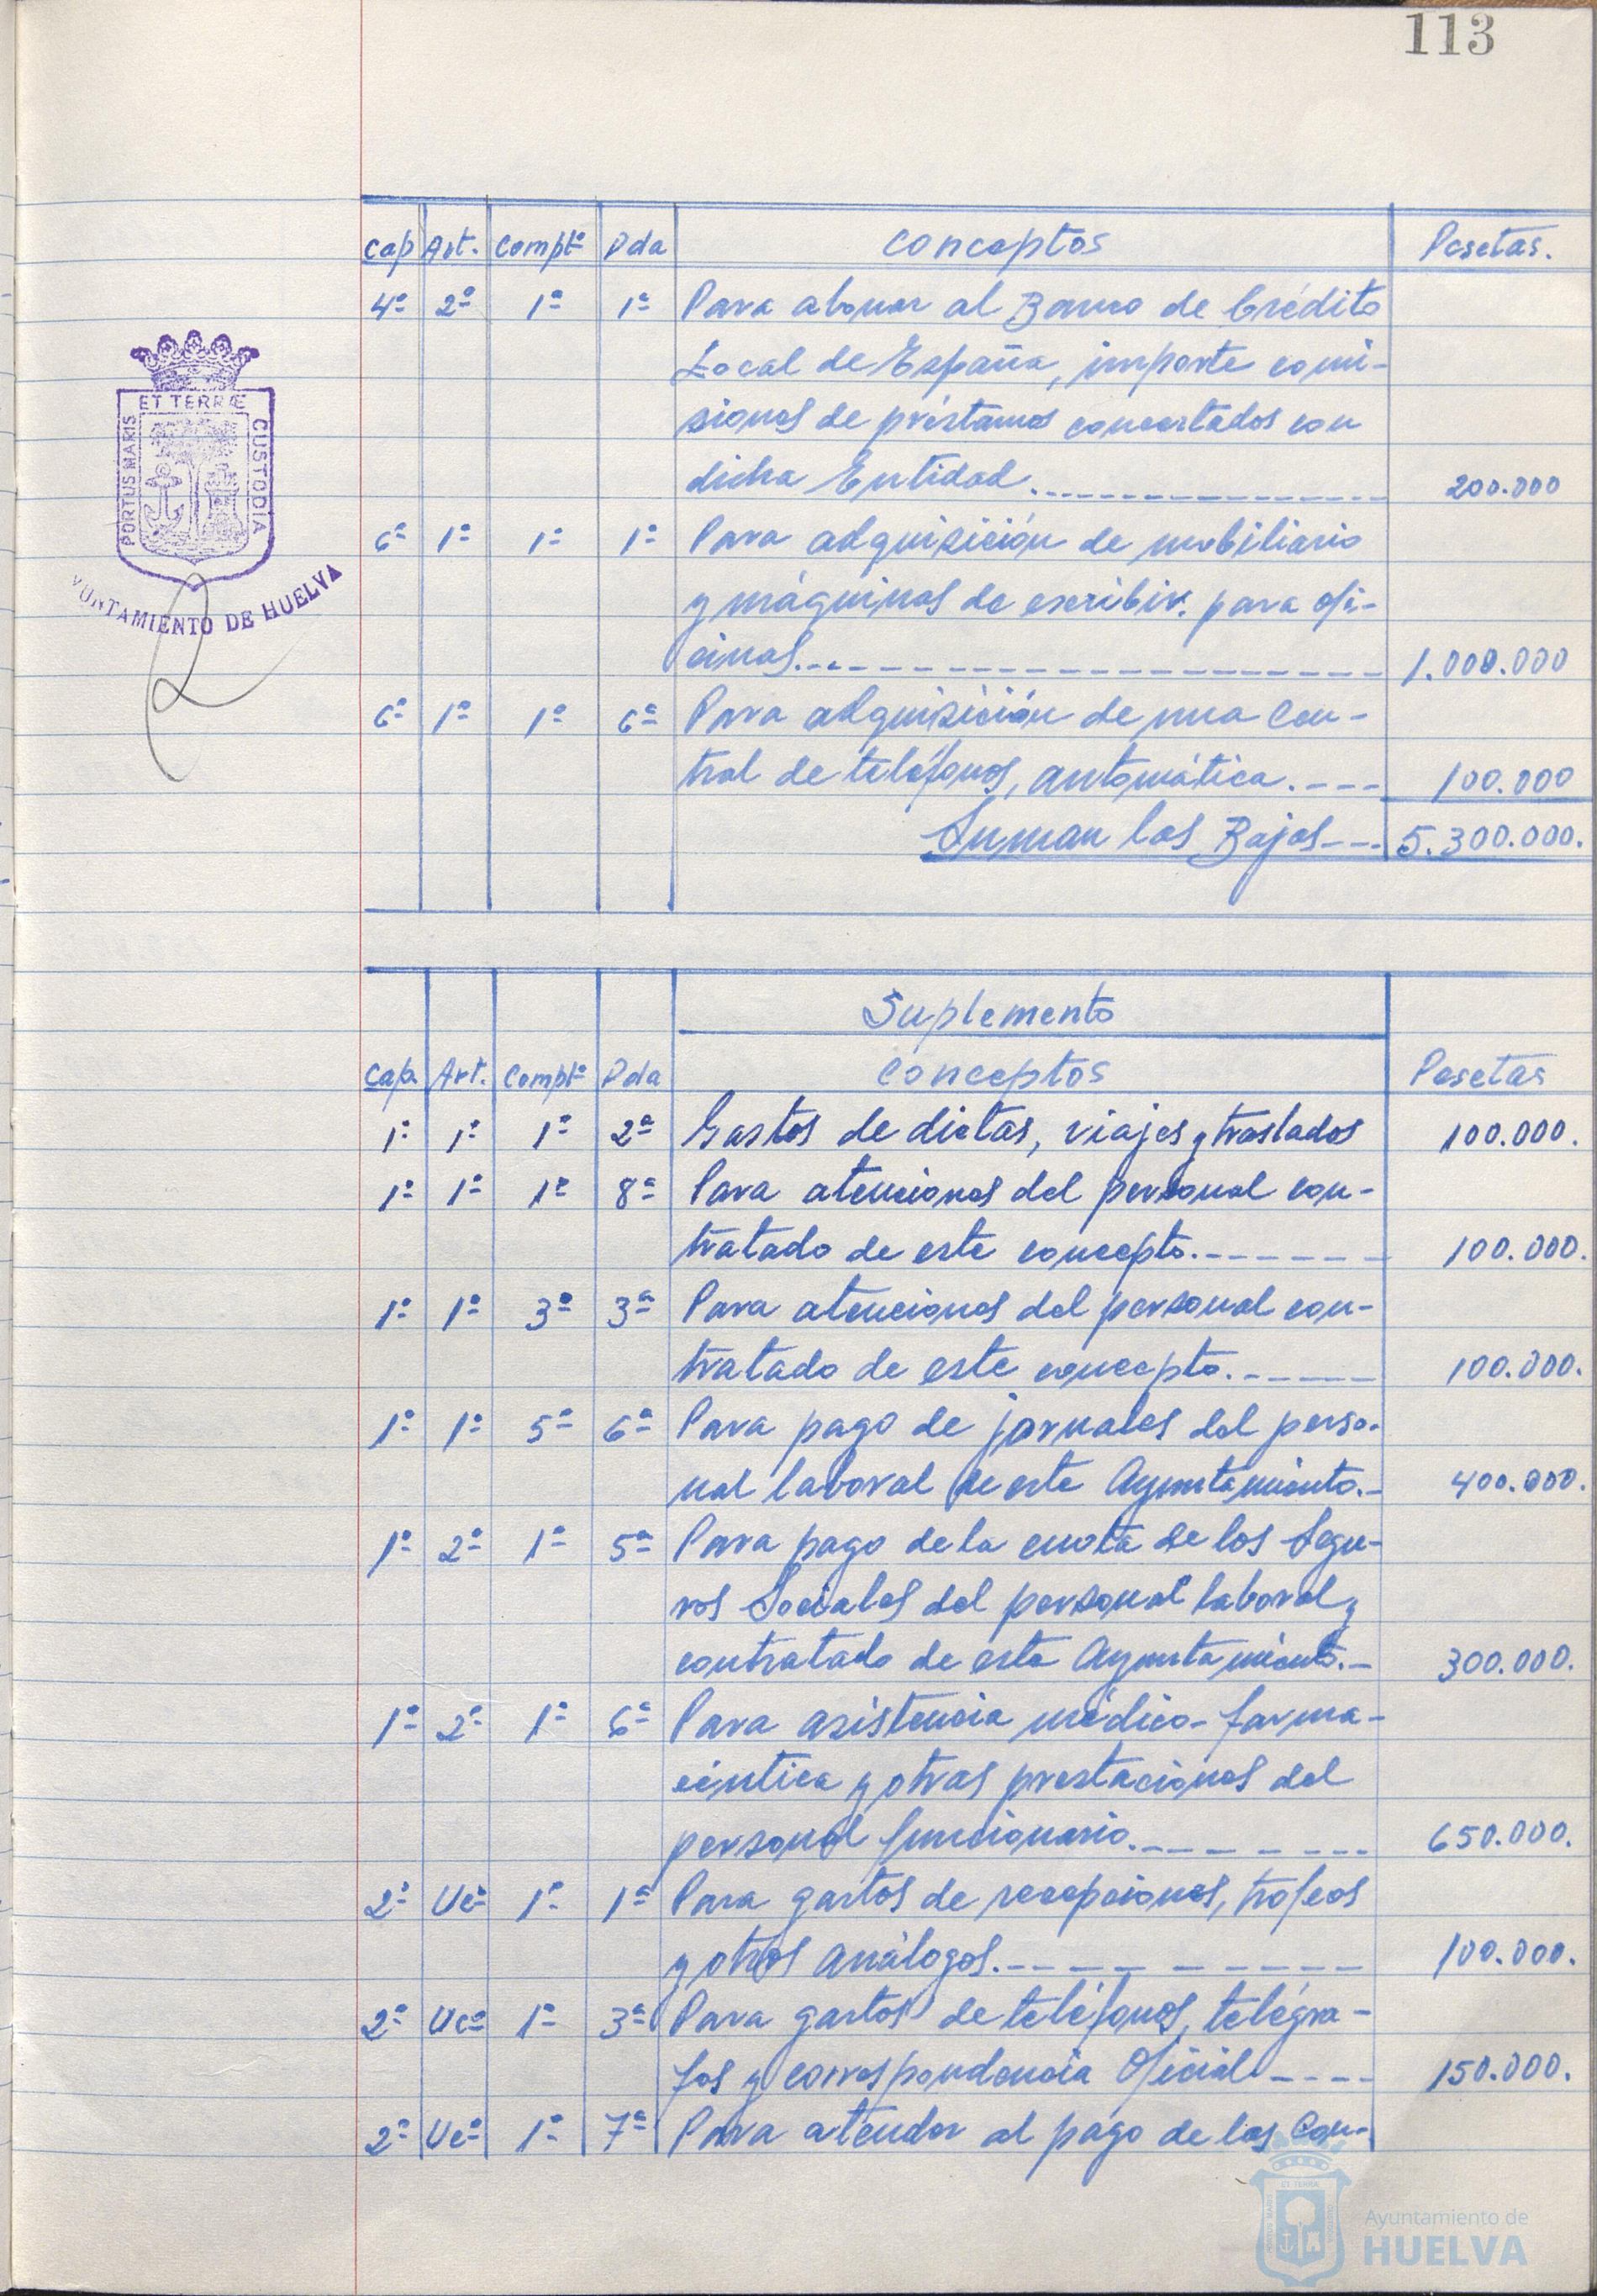 113
Cap Art. Comptº Pda Conceptos Pesetas.
4º 2º 1º 1ª Para abonar al Banco de Crédito
Local de España, importe comi-
siones de préstamos concertados con
dicha Entidad. 200.000
6º 1º 1º 1ª Para adquisición de mobiliario
y máquinas de escribir. para ofi-
cinas. 1.000.000
6º 1º 1º 6ª Para adquisición de una Cen-
tral de teléfonos, automática. 100.000
Suman las Bajas 5.300.000.
Suplemento
Cap. Art. Comptº Pda Conceptos Pesetas
1º 1º 1º 2ª Gastos de dietas, viajes y traslados 100.000.
1º 1º 1º 8ª Para atenciones del personal con-
tratado de este concepto. 100.000.
1º 1º 3º 3ª Para atenciones del personal con-
tratado de este concepto. 100.000.
1º 1º 5º 6ª Para pago de jornales del perso-
nal laboral de este Ayuntamiento. 400.000.
1º 2º 1º 5ª Para pago de la cuota de los Segu-
ros Sociales del personal laboral y
contratado de este Ayuntamiento. 300.000.
1º 2º 1º 6ª Para asistencia médico-farma-
céutica y otras prestaciones del
personal funcionario. 650.000.
2º Ucº 1º 1ª Para gastos de recepciones, trofeos
y otros análogos. 100.000.
2º Ucº 1º 3ª Para gastos de teléfonos, telégra-
fos y correspondencia Oficial 150.000.
2º Ucº 1º 7ª Para atender al pago de las Con-
PORTUS MARIS ET TERRÆ CUSTODIA
YUNTAMIENTO DE HUELVA
Ayuntamiento de
HUELVA